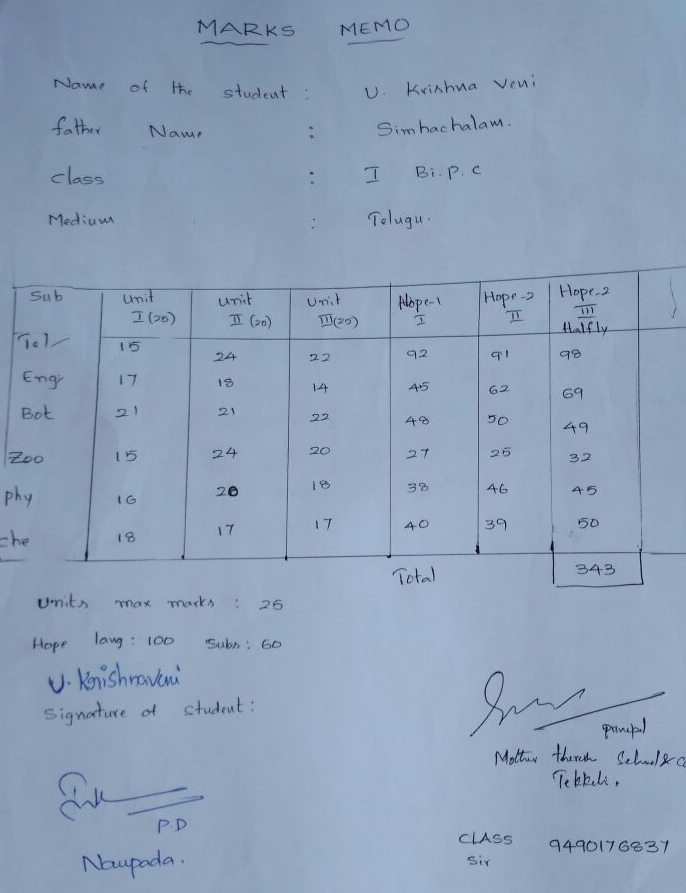 MARKS MEMO
Name of the student : U. Krishna Veni
father Name : Simhachalam.
class : I Bi.P.C
Medium : Telugu.
Sub Unit I (25) Unit II (20) Unit III (25) Hope-1 I Hope-2 II Hope-2 III Halfly
Tel 15 24 22 92 91 98
Eng 17 18 14 45 62 69
Bot 21 21 22 48 50 49
Zoo 15 24 20 27 25 32
phy 16 20 18 38 46 45
che 18 17 17 40 39 50
Total 343
Units max marks : 25
Hope lang : 100 Subs : 60
U. Krishnaveni
Signature of student :
principal
School &
Tekkali.
P.D
Naupada.
CLASS 9490176837
Sir